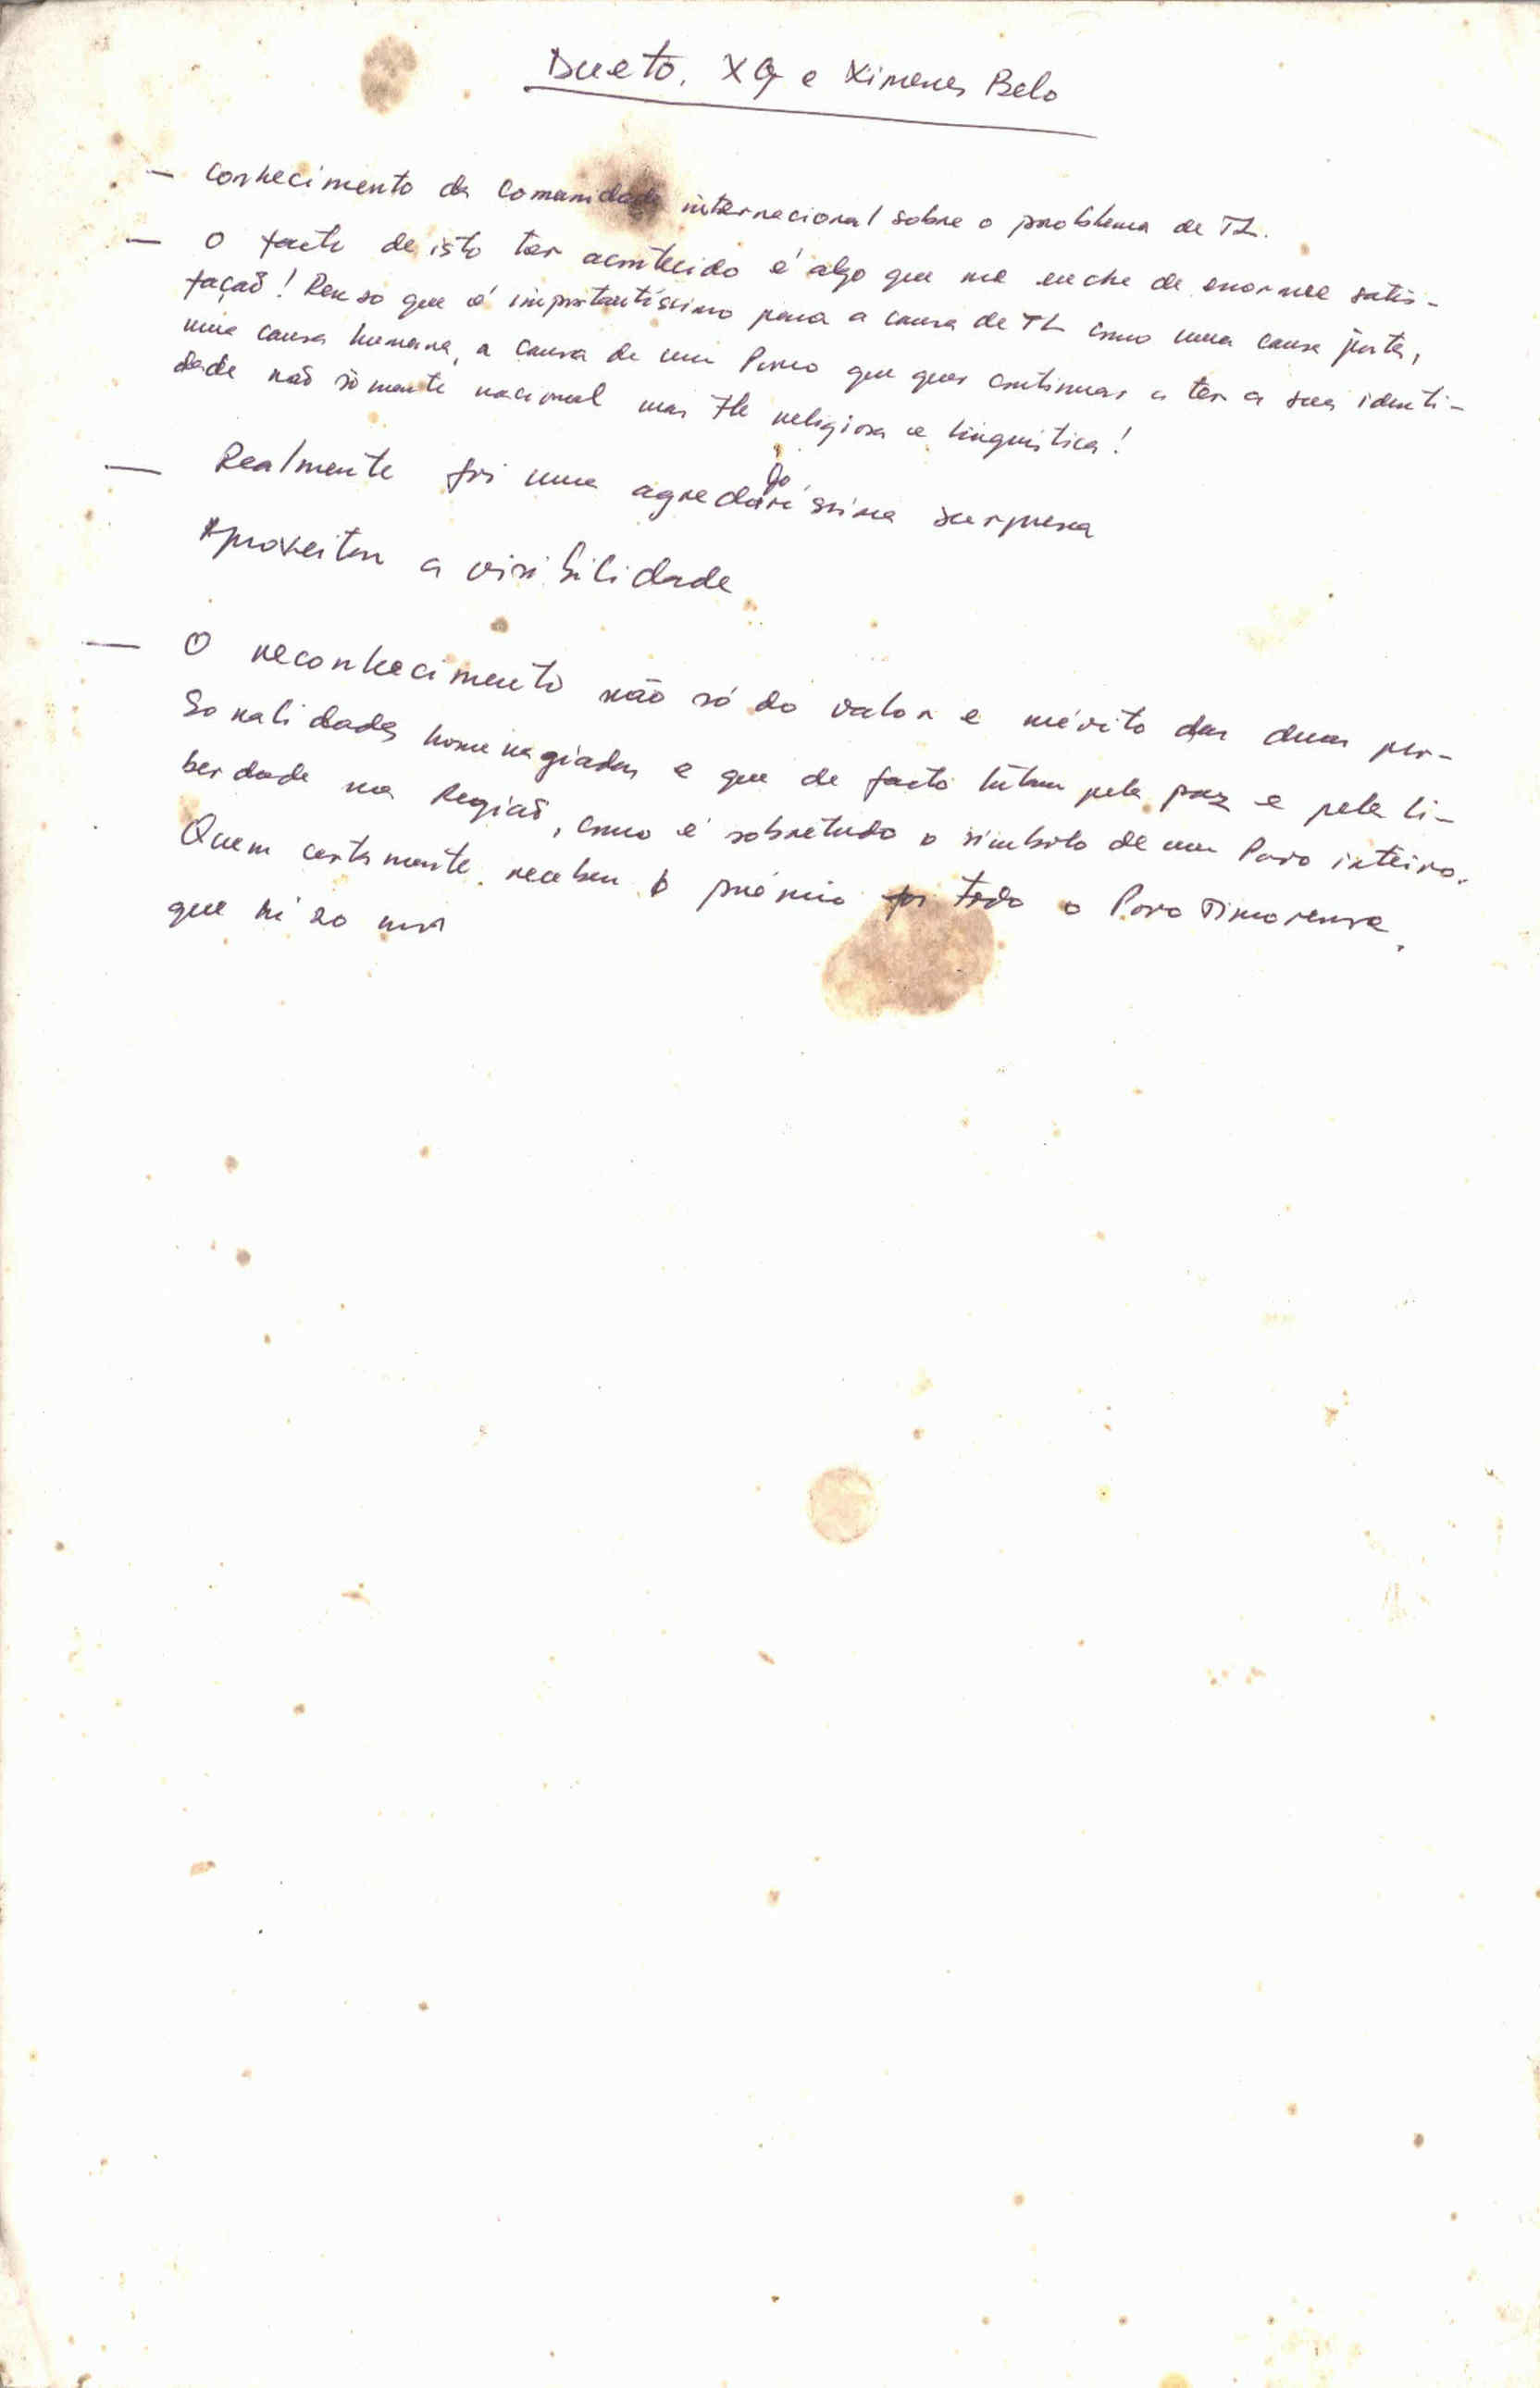 Dueto. XG e Ximenes Belo
— Conhecimento da Comunidade internacional sobre o problema de TL.
— O facto de isto ter acontecido é algo que me enche de enorme satis-
façaõ! Penso que é importantíssimo para a causa de TL como uma causa justa,
uma causa humana, a causa de um Povo que quer continuar a ter a sua identi-
dade naõ sòmente nacional mas tb religiosa e linguistica!
— Realmente foi uma agradabilíssima surpresa
Aproveitar a visibilidade
— O reconhecimento não só do valor e mérito das duas per-
sonalidades homenagiadas e que de facto lutam pela paz e pela li-
berdade na Regiaõ, como é sobretudo o símbolo de um Povo inteiro.
Quem certamente recebeu o prémio foi todo o Povo Timorense.
que